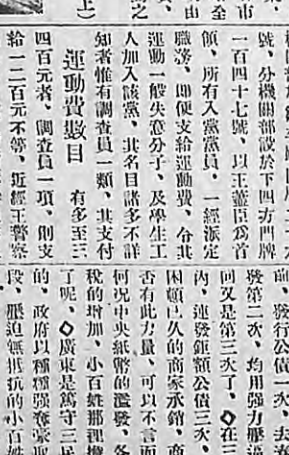 號、分機關部設於下四方門牌
一百四十七號、以王藎臣爲首
領、所有入黨黨員、一經派定
職務、即便支給運動費、令其
運動一般失意分子、及學生工
人加入該黨、其名目諸多不詳
知者惟有調查員一類、其支付
運動費數目 有多至三
四百元者、調查員一項、則支
給一二百元不等、近經王警察
前、發行公債一次、去
發第二次、均用强力壓迫
回又是第三次了、◇在三
內、連發鉅額公債三次、
困頓已久的商家承銷、商
否有此力量、可以不言而
何况中央紙幣的濫發、各
稅的增加、小百姓那裡
了呢、◇廣東是篤守三民
的、政府以種種强奪豪取
段、壓迫無抵抗的小百姓